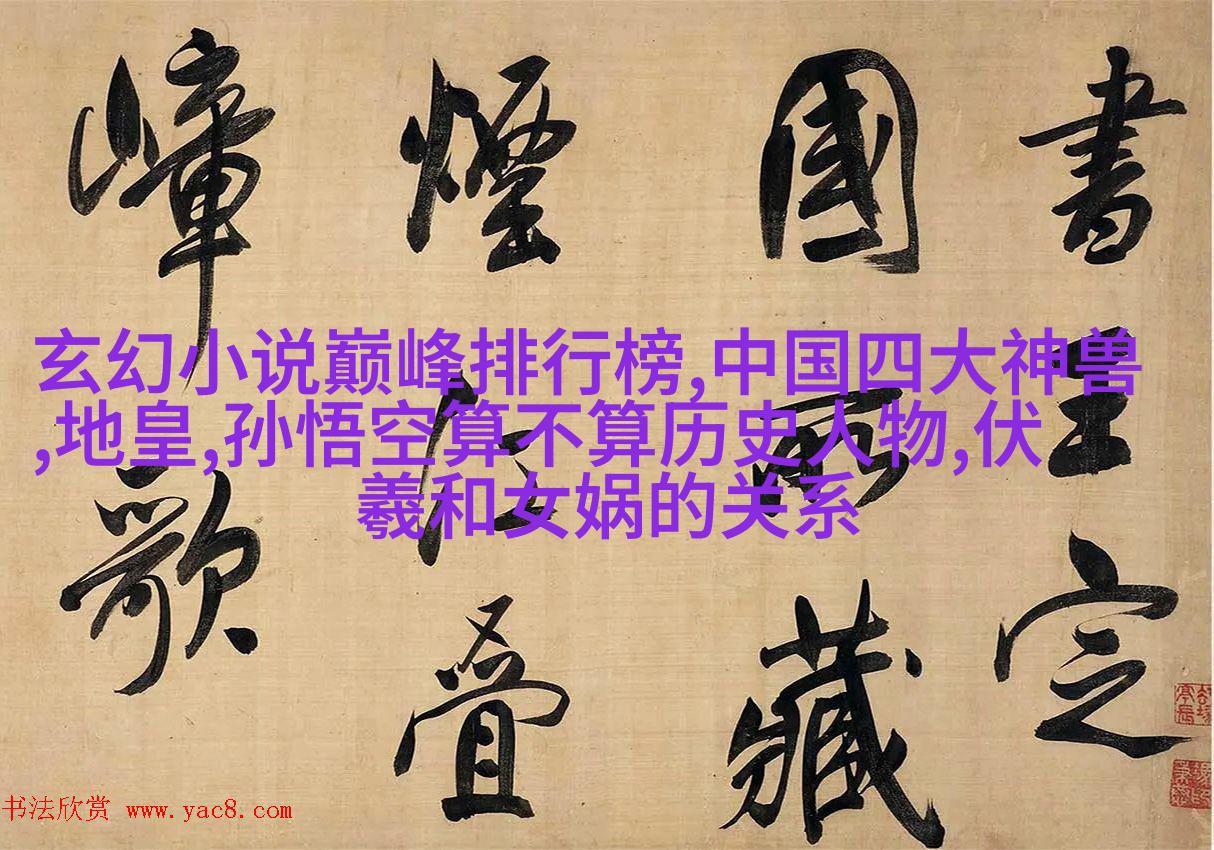 書王定
國所藏
煙江疊
嶂歌
玄幻小说巅峰排行榜,中国四大神兽
,地皇,孙悟空算不算历史人物,伏
羲和女娲的关系
书法欣赏 www.yac8.com